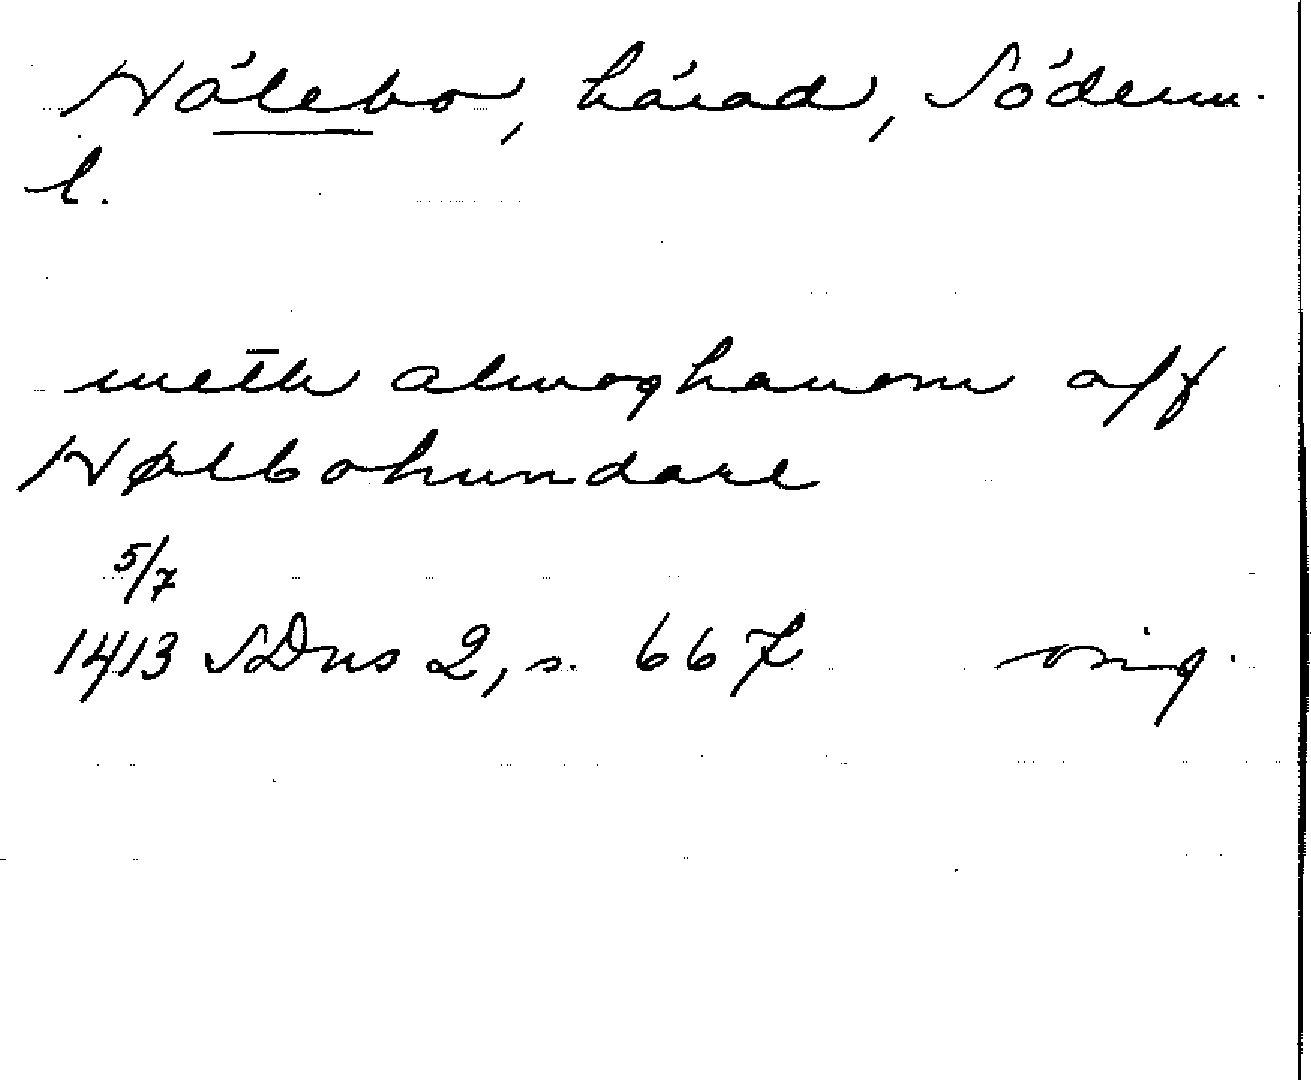 Hölebo, härad, Söderm.
l.
meth almoghanom aff
Hølbohundare
5/7
1413 SDns 2, s. 667 orig.